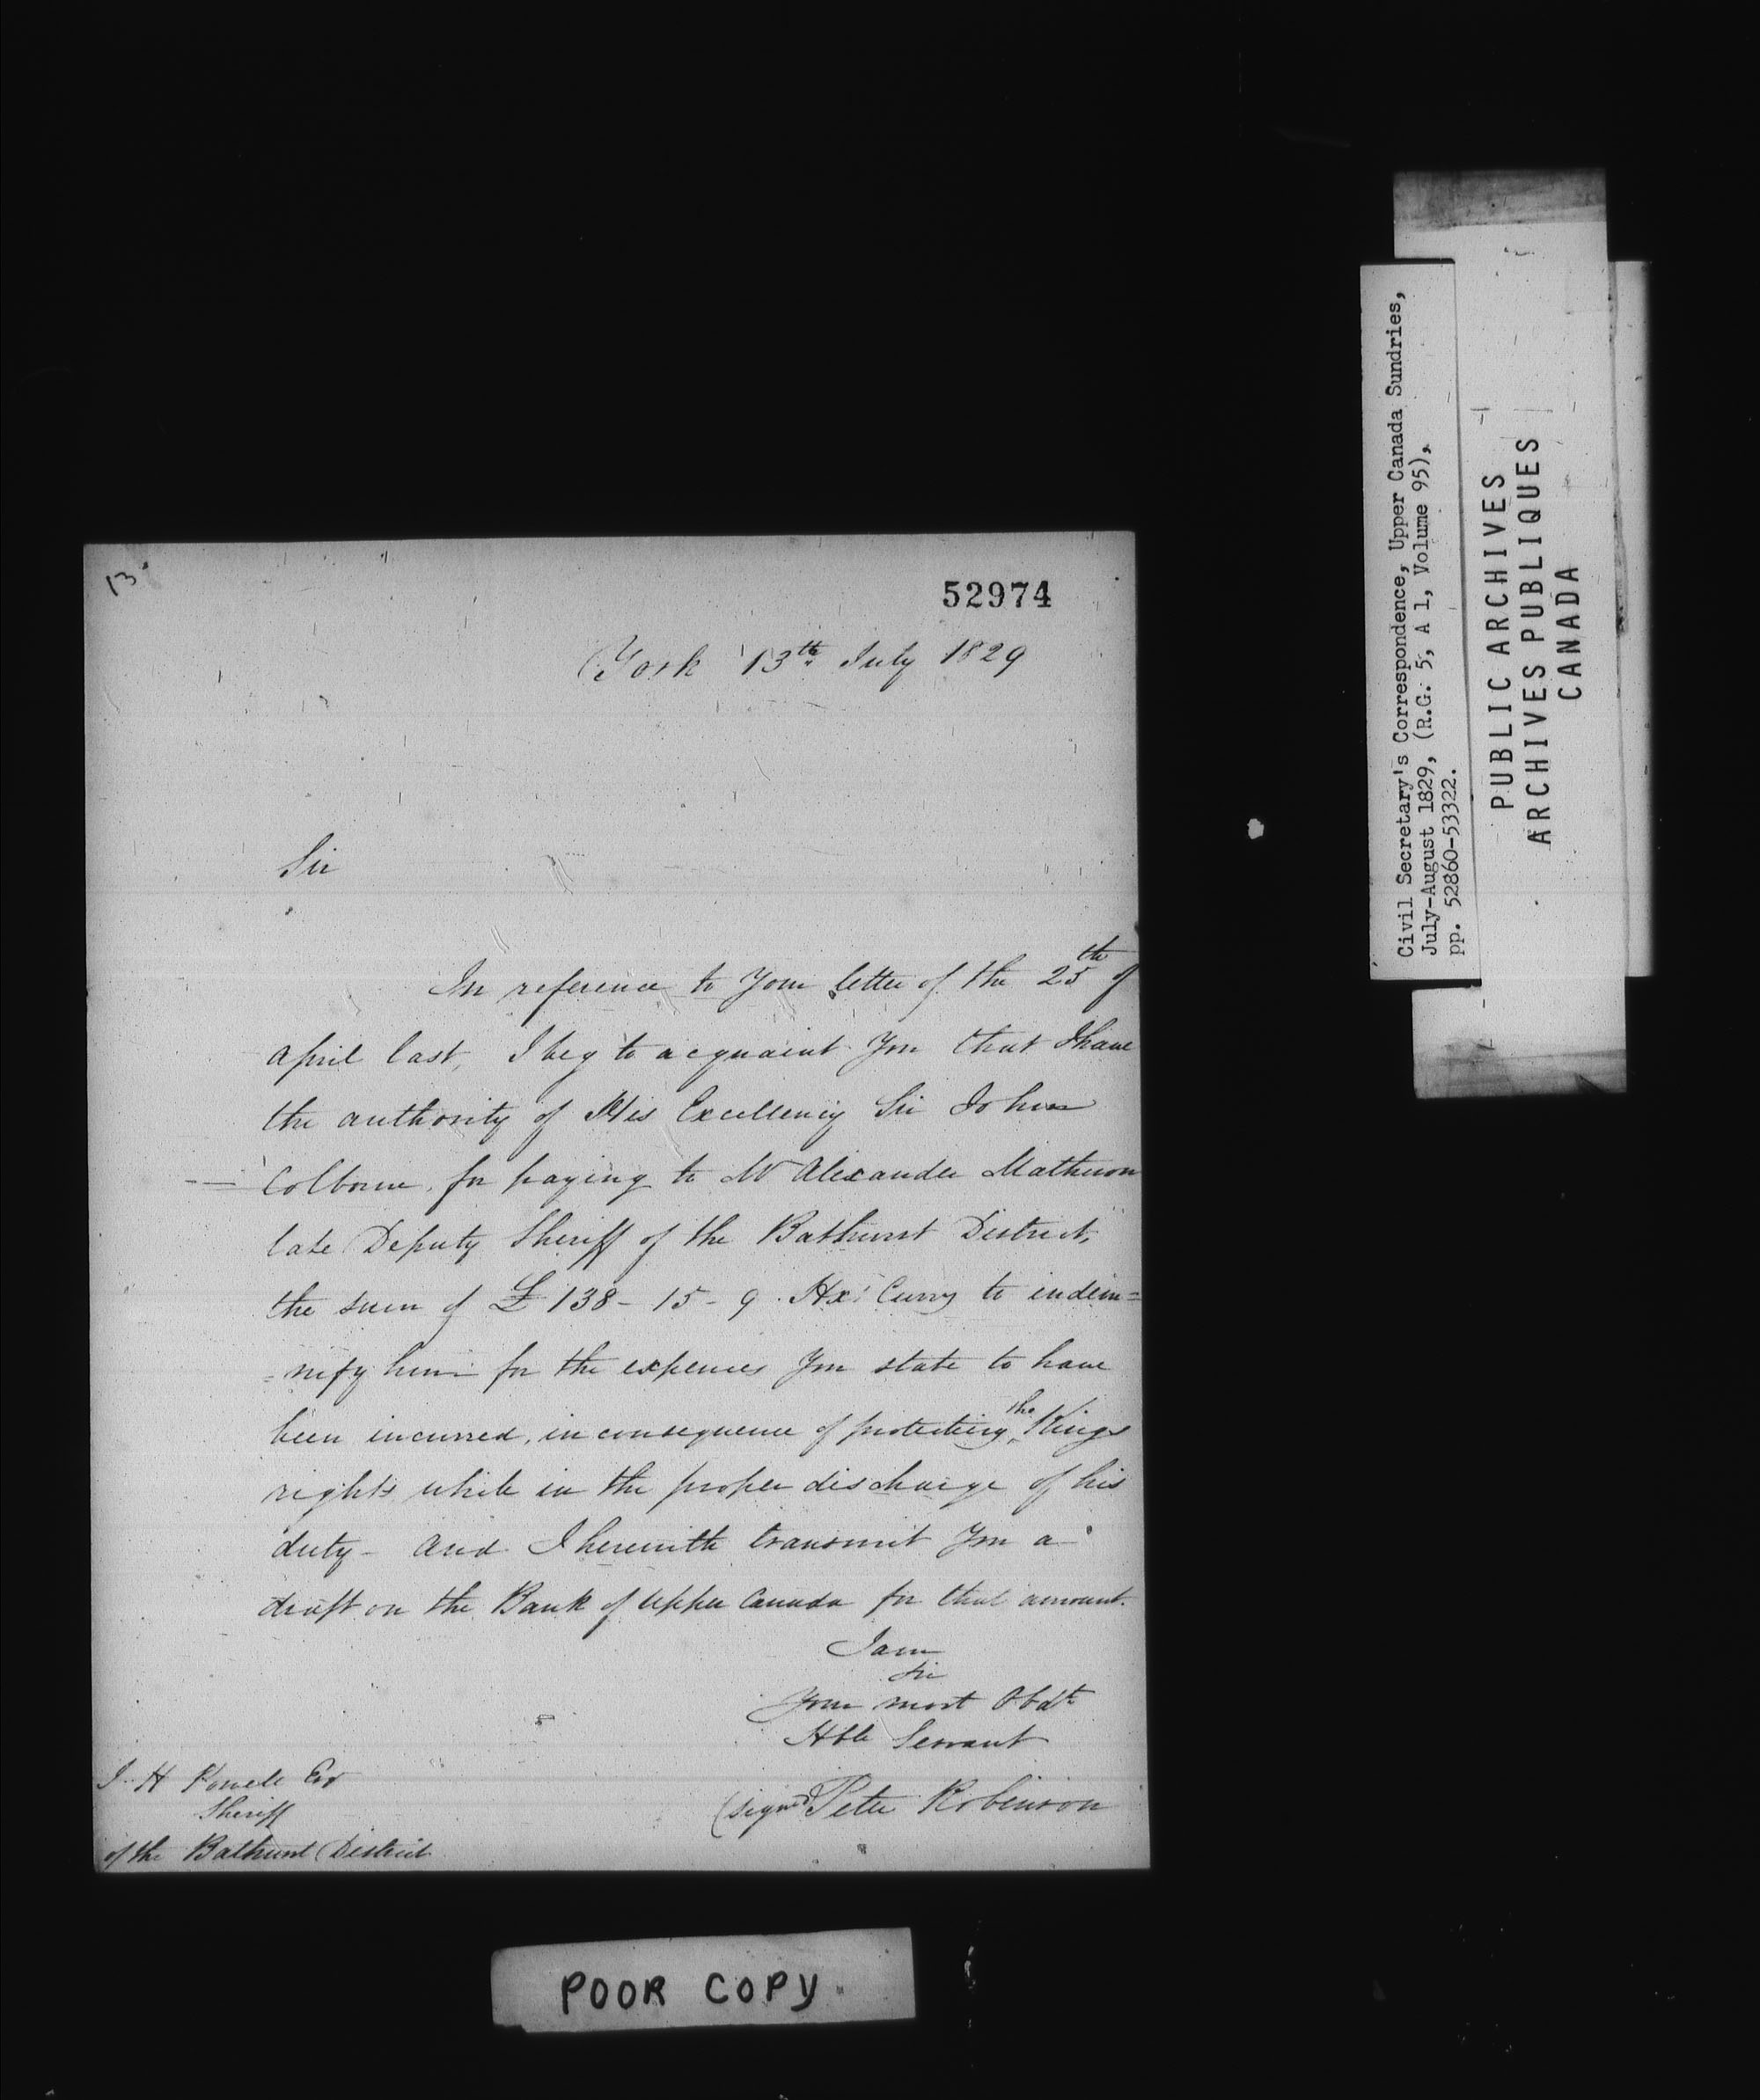 13
52974
York 13th July 1829
Sir
In reference to Your letter of the 25th of
april last, I beg to acquaint You that I have
the authority of His Excellency Sir John
Colborne, for paying to Mr Alexander Matheson
late Deputy Sheriff of the Bathurst District,
the sum of £ 138 - 15 - 9 Hx Curry to indem=
=nify him for the expences You state to have
been incurred, in consequence of protecting the Kings
rights while in the proper discharge of his
duty - and I herewith transmit You a
draft on the Bank of Upper Canada for that amount.
I am
Sir
Your most Obdt
Hble Servant
(signed) Peter Robinson
J H Powell Esr
Sheriff
of the Bathurst District
POOR COPY
Civil Secretary's Correspondence, Upper Canada Sundries,
July-August 1829, (R.G. 5, A 1, Volume 95),
pp. 52860-53322.
PUBLIC ARCHIVES
ARCHIVES PUBLIQUES
CANADA